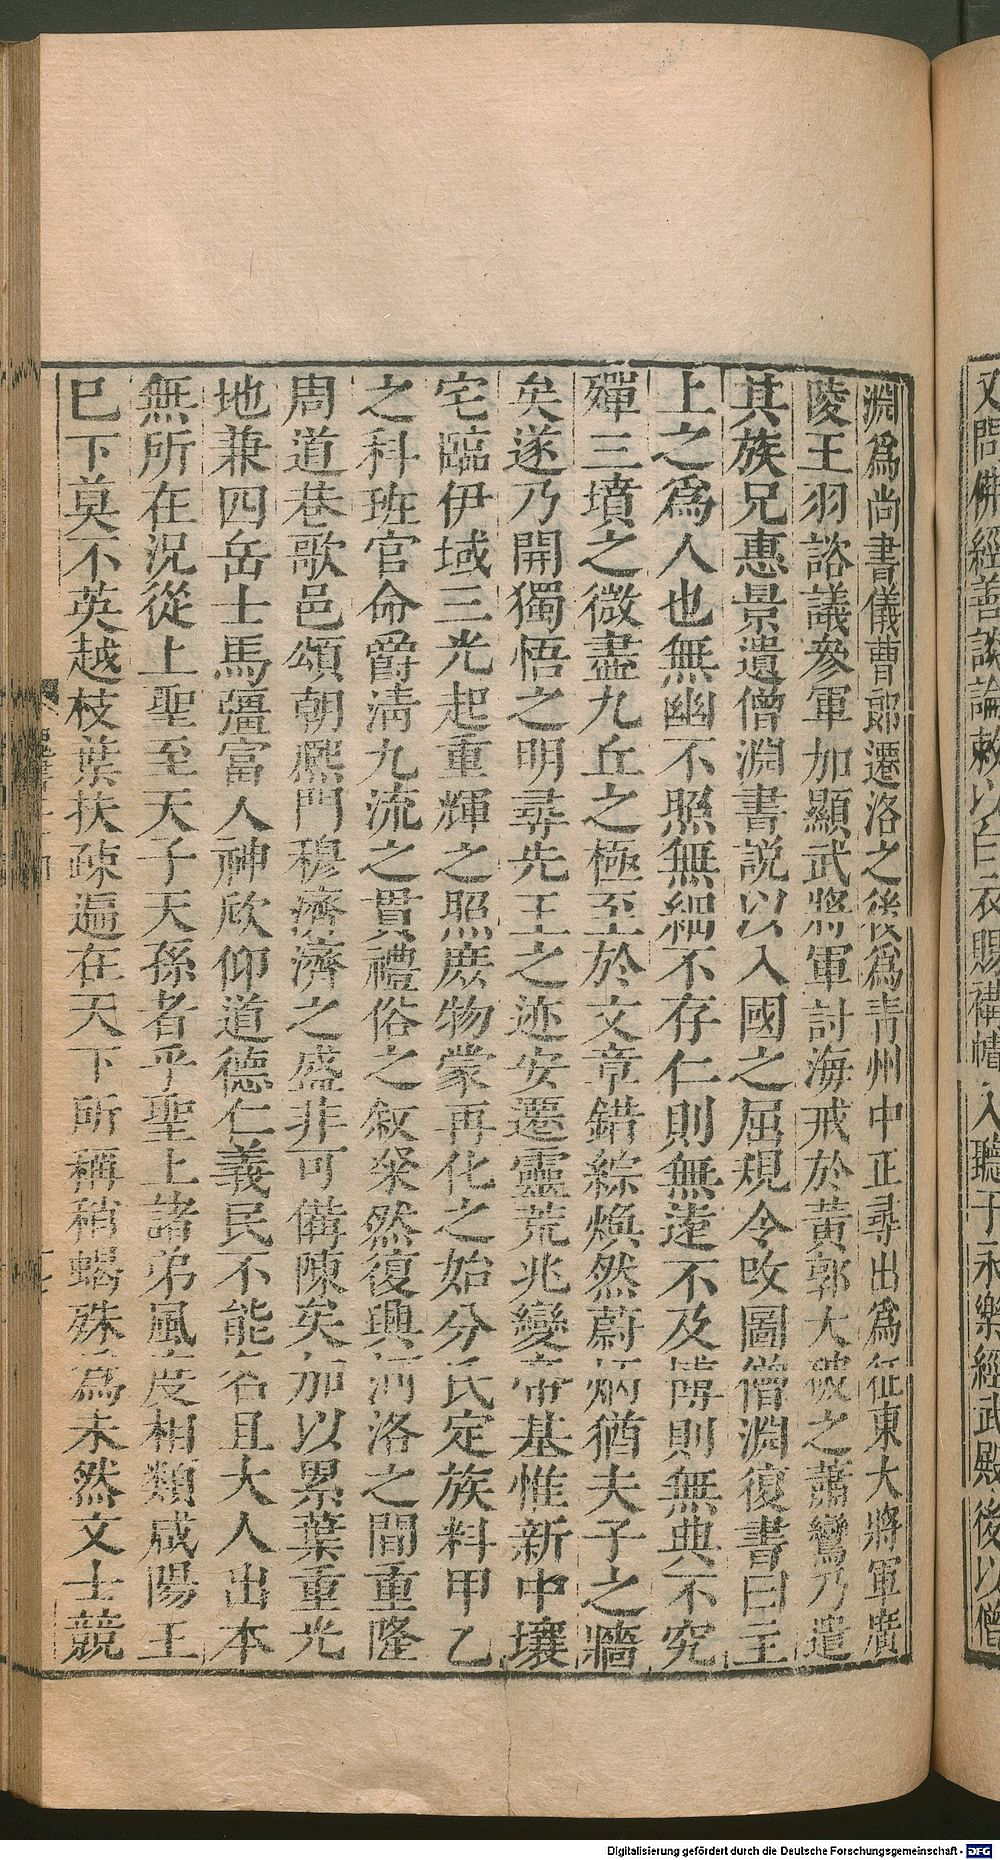 又問佛經善談論敕以白衣賜褠幘入聽于永樂經武殿後以僧
淵爲尚書儀曹郎遷洛之後爲青州中正尋出爲征東大將軍廣
陵王羽諮議參軍加顯武將軍討海戎於黃郭大破之蕭鸞乃遣
其族兄惠景遺僧淵書說以入國之屈規令改圖僧淵復書曰主
上之爲人也無幽不照無細不存仁則無遠不及博則無典不究
殫三墳之微盡九丘之極至於文章錯綜煥然蔚炳猶夫子之牆
矣遂乃開獨悟之明尋先王之迹安遷靈荒兆變帝基惟新中壤
宅臨伊域三光起重輝之照庶物蒙再化之始分氏定族料甲乙
之科班官命爵清九流之貫禮俗之敘粲然復興河洛之間重隆
周道巷歌邑頌朝熙門穆濟濟之盛非可備陳矣加以累葉重光
地兼四岳士馬彊富人神欣仰道德仁義民不能名且大人出本
無所在況從上聖至天子天孫者乎聖上諸弟風度相類咸陽王
已下莫不英越枝葉扶疎遍在天下所稱稍蝎殊爲未然文士競
Digitalisierung gefördert durch die Deutsche Forschungsgemeinschaft - DFG